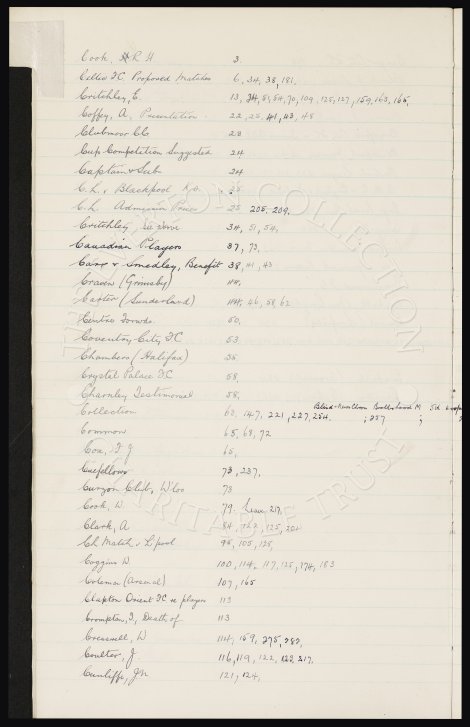 Cook, R H 3.
Celtic F.C. Proposed Matches 6, 34, 38, 181.
Critchley, E. 13, 34, 51, 54, 70, 109, 125, 127, 159, 163, 165
Coffey, A, Presentation 22, 25, 41, 43, 48
Clubmoor CC 23
Cup Competition Suggested 24
Captain & Sub 24
C.L. v Blackpool 25
C.L. Admission Prices 25 205, 209.
Critchley, see above 34, 51, 54,
Canadian Players 37, 73,
Carr & Smedley, Benefit 38, 41, 43
Craven (Grimsby) 44,
Carter (Sunderland) 44, 46, 58, 62
Centre Forwds. 50,
Coventry City FC 53
Chambers (Halifax) 55
Crystal Palace FC 58,
Charnley Testimonial 58,
Collection 63, 147, 221, 227, 254. ; 257 ;
Common 65, 68, 72
Cox, 65,
Cuefellows 73, 237.
Curzon Club, W'loo 73
Cook, W. 79. Leave 217.
Clark, A 84, 122, 125, 202
Ch Match v L'pool 95, 105, 128,
Coggins W 100, 114, 117, 125, 174, 183
Coleman (Arsenal) 107, 165
Clapton Orient FC re player 113
Crompton, Death of 113
Cresswell, W 114, 159, 275, 282,
Coulter, J 116, 119, 122, 217.
Cunliffe, JN 121, 124,
THE COLLECTION
CHARITABLE TRUST